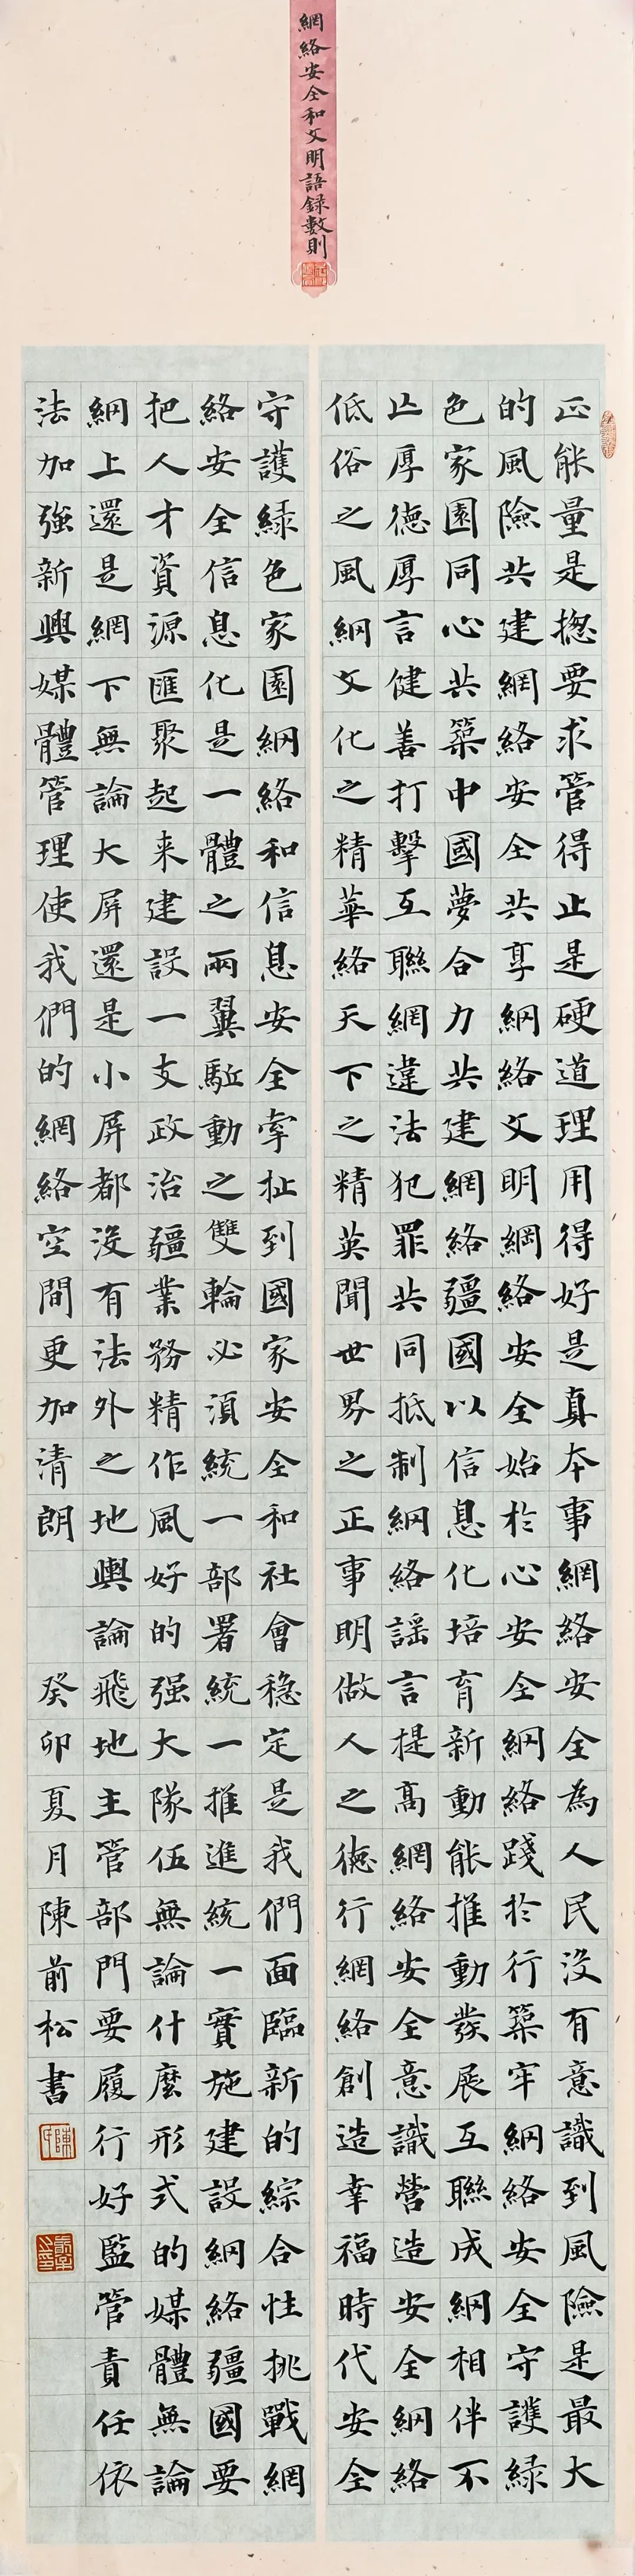 網絡安全和文明語錄數則
正能量是揔要求管得止是硬道理用得好是真本事網絡安全為人民没有意識到風險是最大
的風險共建網絡安全共享網絡文明網絡安全始於心安全網絡踐於行築牢網絡安全守護緑
色家園同心共築中國夢合力共建網絡疆國以信息化培育新動能推動發展互聯成網相伴不
止厚德厚言健善打擊互聯網違法犯罪共同抵制網絡謡言提高網絡安全意識營造安全網絡
低俗之風網文化之精華絡天下之精英聞世界之正事明做人之德行網絡創造幸福時代安全
守護緑色家園網絡和信息安全牽扯到國家安全和社會稳定是我們面臨新的綜合性挑戰網
絡安全信息化是一體之兩翼駈動之雙輪必須統一部署統一推進統一實施建設網絡疆國要
把人才資源匯聚起来建設一支政治疆業務精作風好的强大隊伍無論什麽形式的媒體無論
網上還是網下無論大屏還是小屏都没有法外之地輿論飛地主管部門要履行好監管責任依
法加強新興媒體管理使我們的網絡空間更加清朗 癸卯夏月陳前松書